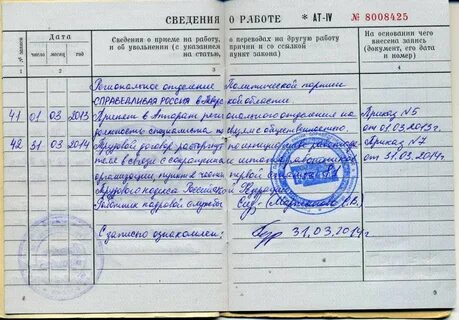 СВЕДЕНИЯ О РАБОТЕ * АТ-IV № 8008425
№ записи
Дата
число месяц год
Сведения о приеме на работу, о переходах на другую работу
и об увольнении (с указанием причин и со ссылкой
на статью, пункт закона)
На основании чего
внесена запись
(документ, его дата
и номер)
1 2 3 4
Региональное отделение Политической партии
СПРАВЕДЛИВАЯ РОССИЯ в области
41 01 03 2013 Принят в Аппарат регионального отделения на Приказ №5
должность специалиста по с общественностью. от 01.03.2013г.
42 31 03 2014 Трудовой договор расторгнут по инициативе Приказ №7
в связи с сокращением от 31.03.2014г
организации, пункт 2 части первой статьи 81
Трудового кодекса Российской Федерации
Работник кадровой службы
С записью ознакомлен: 31.03.2014г